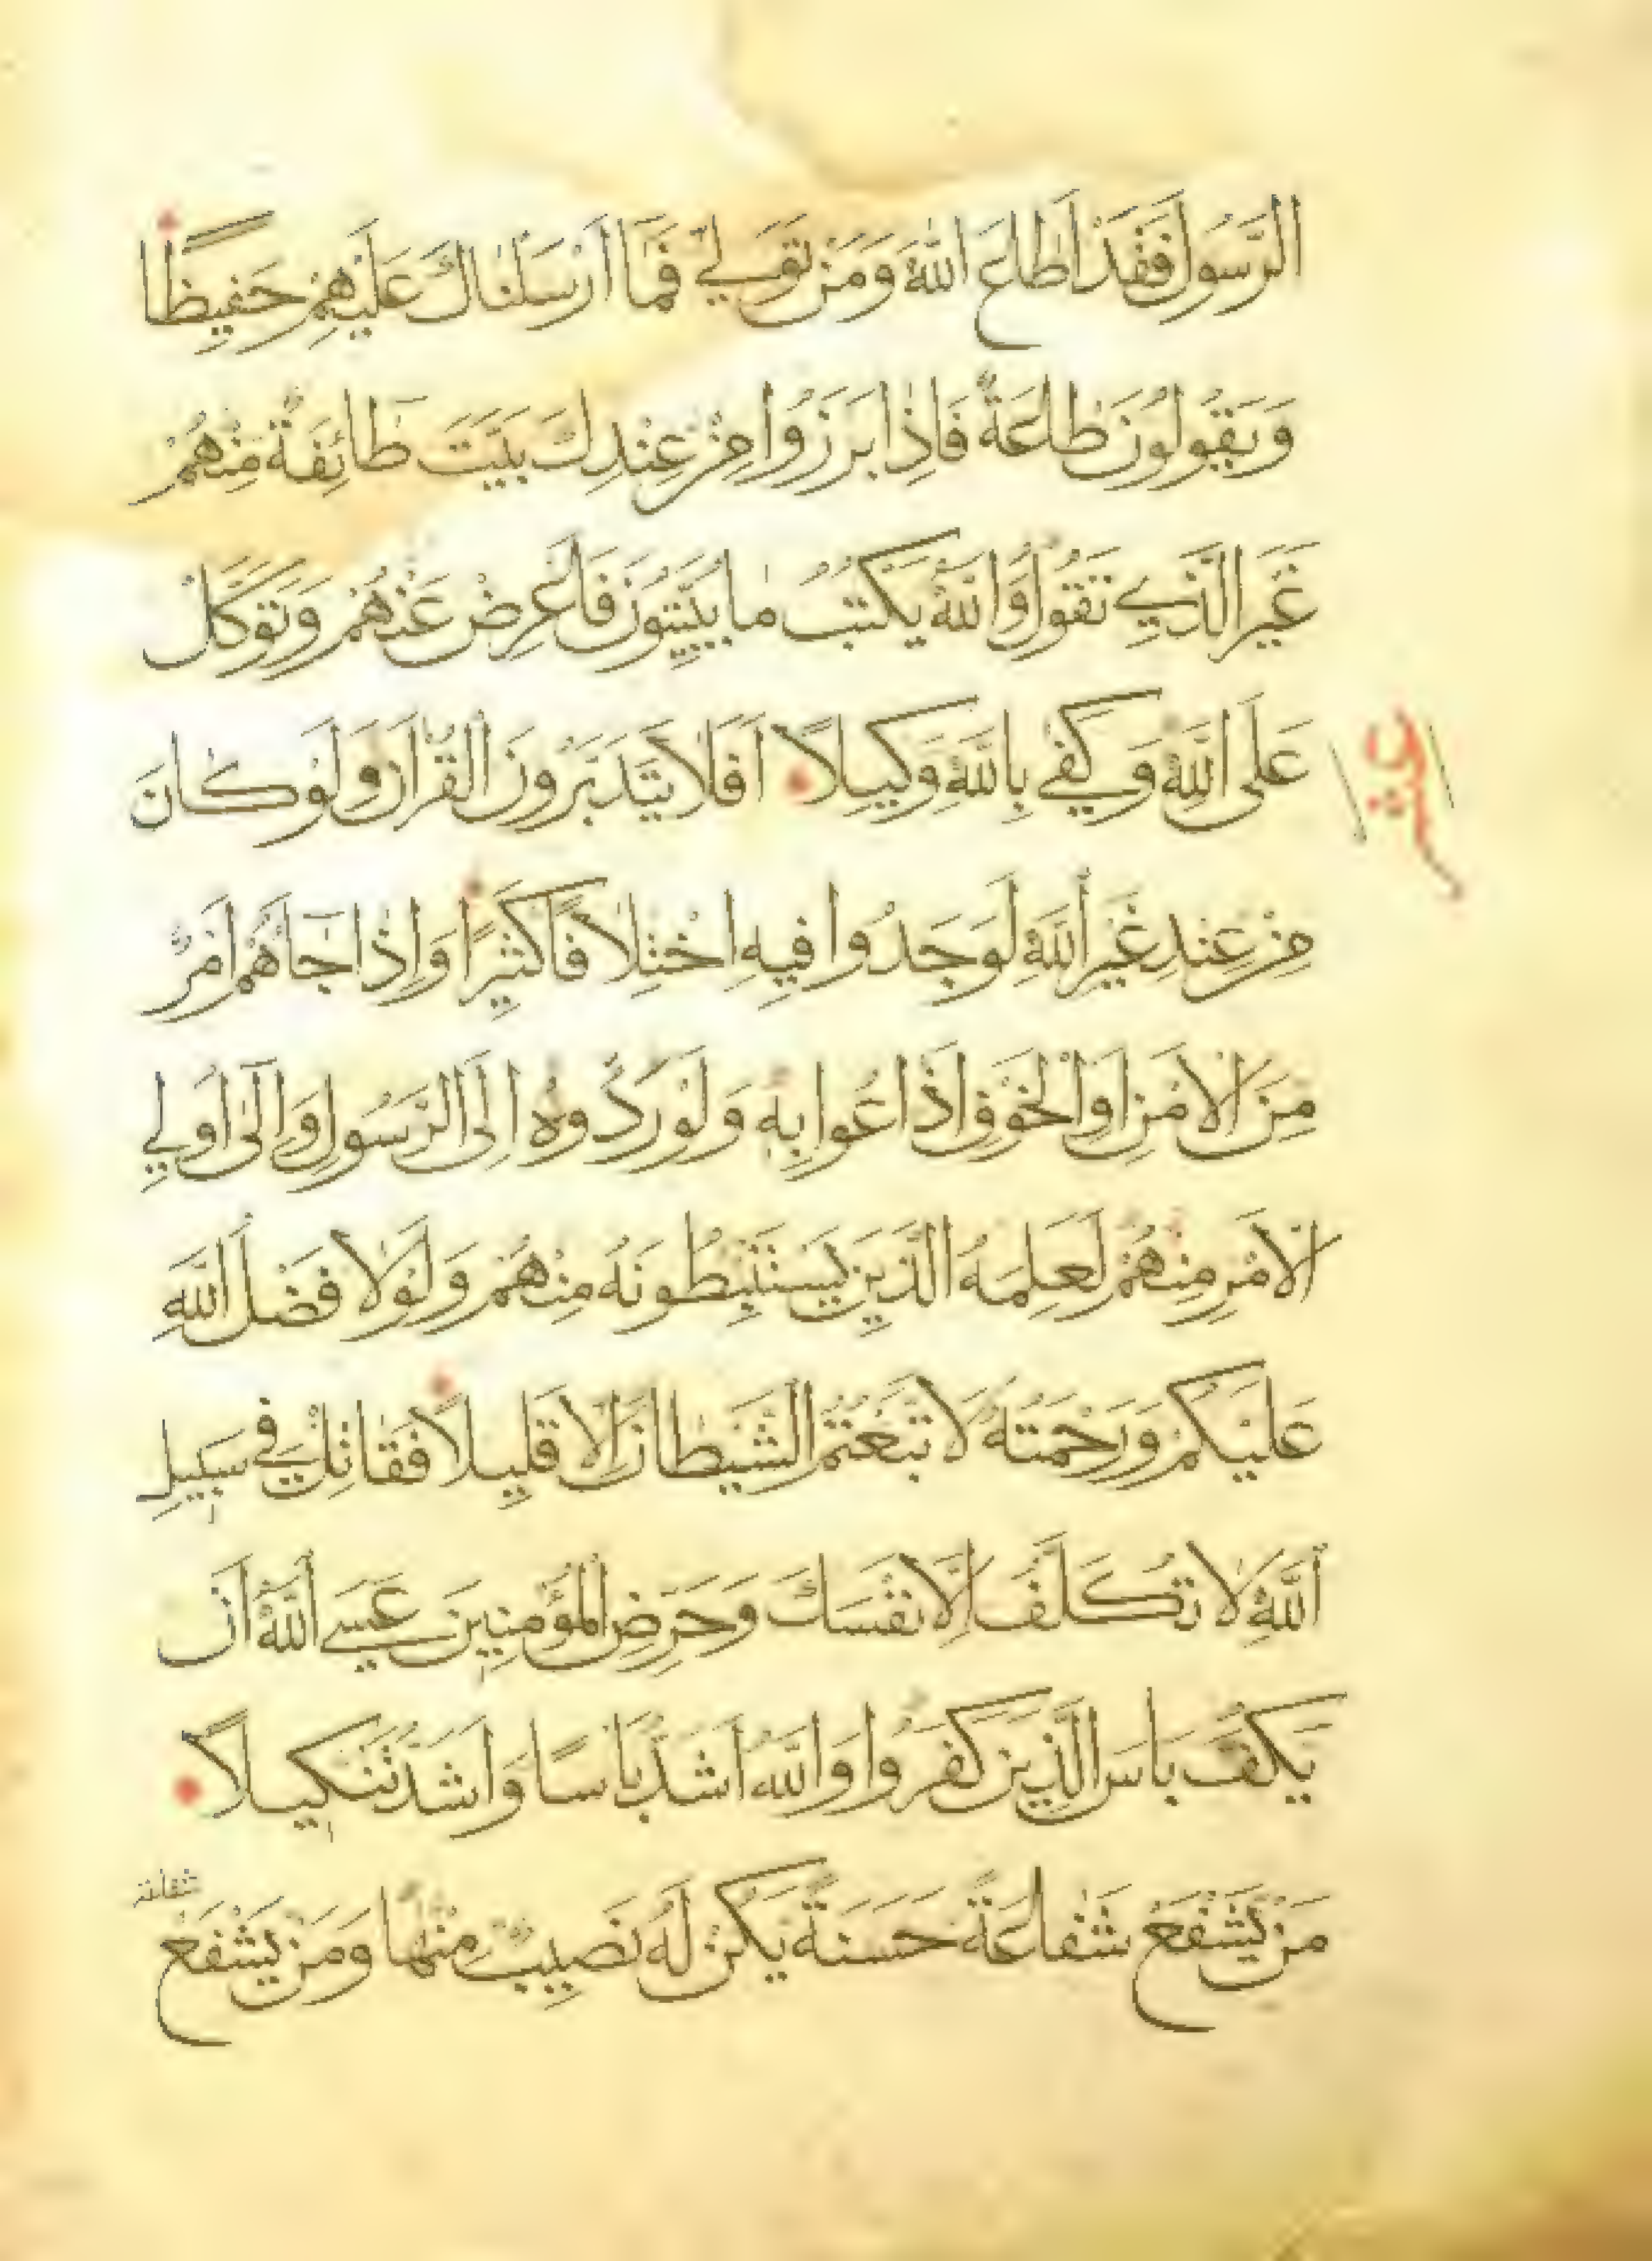 الرَّسُولَ فَقَدْ اَطَاعَ اللّٰهَ وَمَنْ تَوَلّٰي فَمَا اَرْسَلْنَاكَ عَلَيْهِمْ حَفِيظًا
وَيَقُولُونَ طَاعَةٌ فَاِذَا بَرَزُوا مِنْ عِنْدِكَ بَيَّتَ طَائِفَةٌ مِنْهُمْ
غَيْرَ الَّذِي تَقُولُ وَاللّٰهُ يَكْتُبُ مَا يُبَيِّتُونَ فَاَعْرِضْ عَنْهُمْ وَتَوَكَّلْ
عَلَى اللّٰهِ وَكَفٰي بِاللّٰهِ وَكِيلًا اَفَلَا يَتَدَبَّرُونَ الْقُرْاٰنَ وَلَوْ كَانَ
عشر
مِنْ عِنْدِ غَيْرِ اللّٰهِ لَوَجَدُوا فِيهِ اخْتِلَافًا كَثِيرًا وَاِذَا جَاءَهُمْ اَمْرٌ
مِنَ الْاَمْنِ اَوِ الْخَوْفِ اَذَاعُوا بِهِ وَلَوْ رَدُّوهُ اِلَى الرَّسُولِ وَاِلٰى اُولِي
الْاَمْرِ مِنْهُمْ لَعَلِمَهُ الَّذِينَ يَسْتَنْبِطُونَهُ مِنْهُمْ وَلَوْلَا فَضْلُ اللّٰهِ
عَلَيْكُمْ وَرَحْمَتُهُ لَاتَّبَعْتُمُ الشَّيْطَانَ اِلَّا قَلِيلًا فَقَاتِلْ فِي سَبِيلِ
اللّٰهِ لَا تُكَلَّفُ اِلَّا نَفْسَكَ وَحَرِّضِ الْمُؤْمِنِينَ عَسَي اللّٰهُ اَنْ
يَكُفَّ بَاْسَ الَّذِينَ كَفَرُوا وَاللّٰهُ اَشَدُّ بَاْسًا وَاَشَدُّ تَنْكِيلًا
مَنْ يَشْفَعْ شَفَاعَةً حَسَنَةً يَكُنْ لَهُ نَصِيبٌ مِنْهَا وَمَنْ يَشْفَعْ
شفاعة